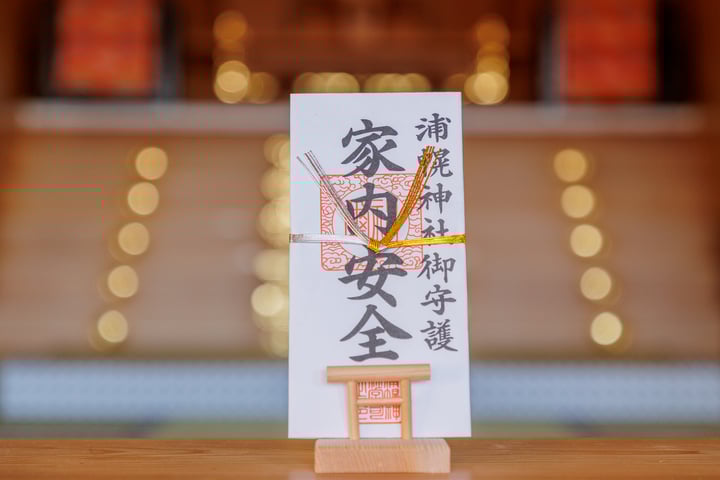 浦幌神社御守護
家内安全